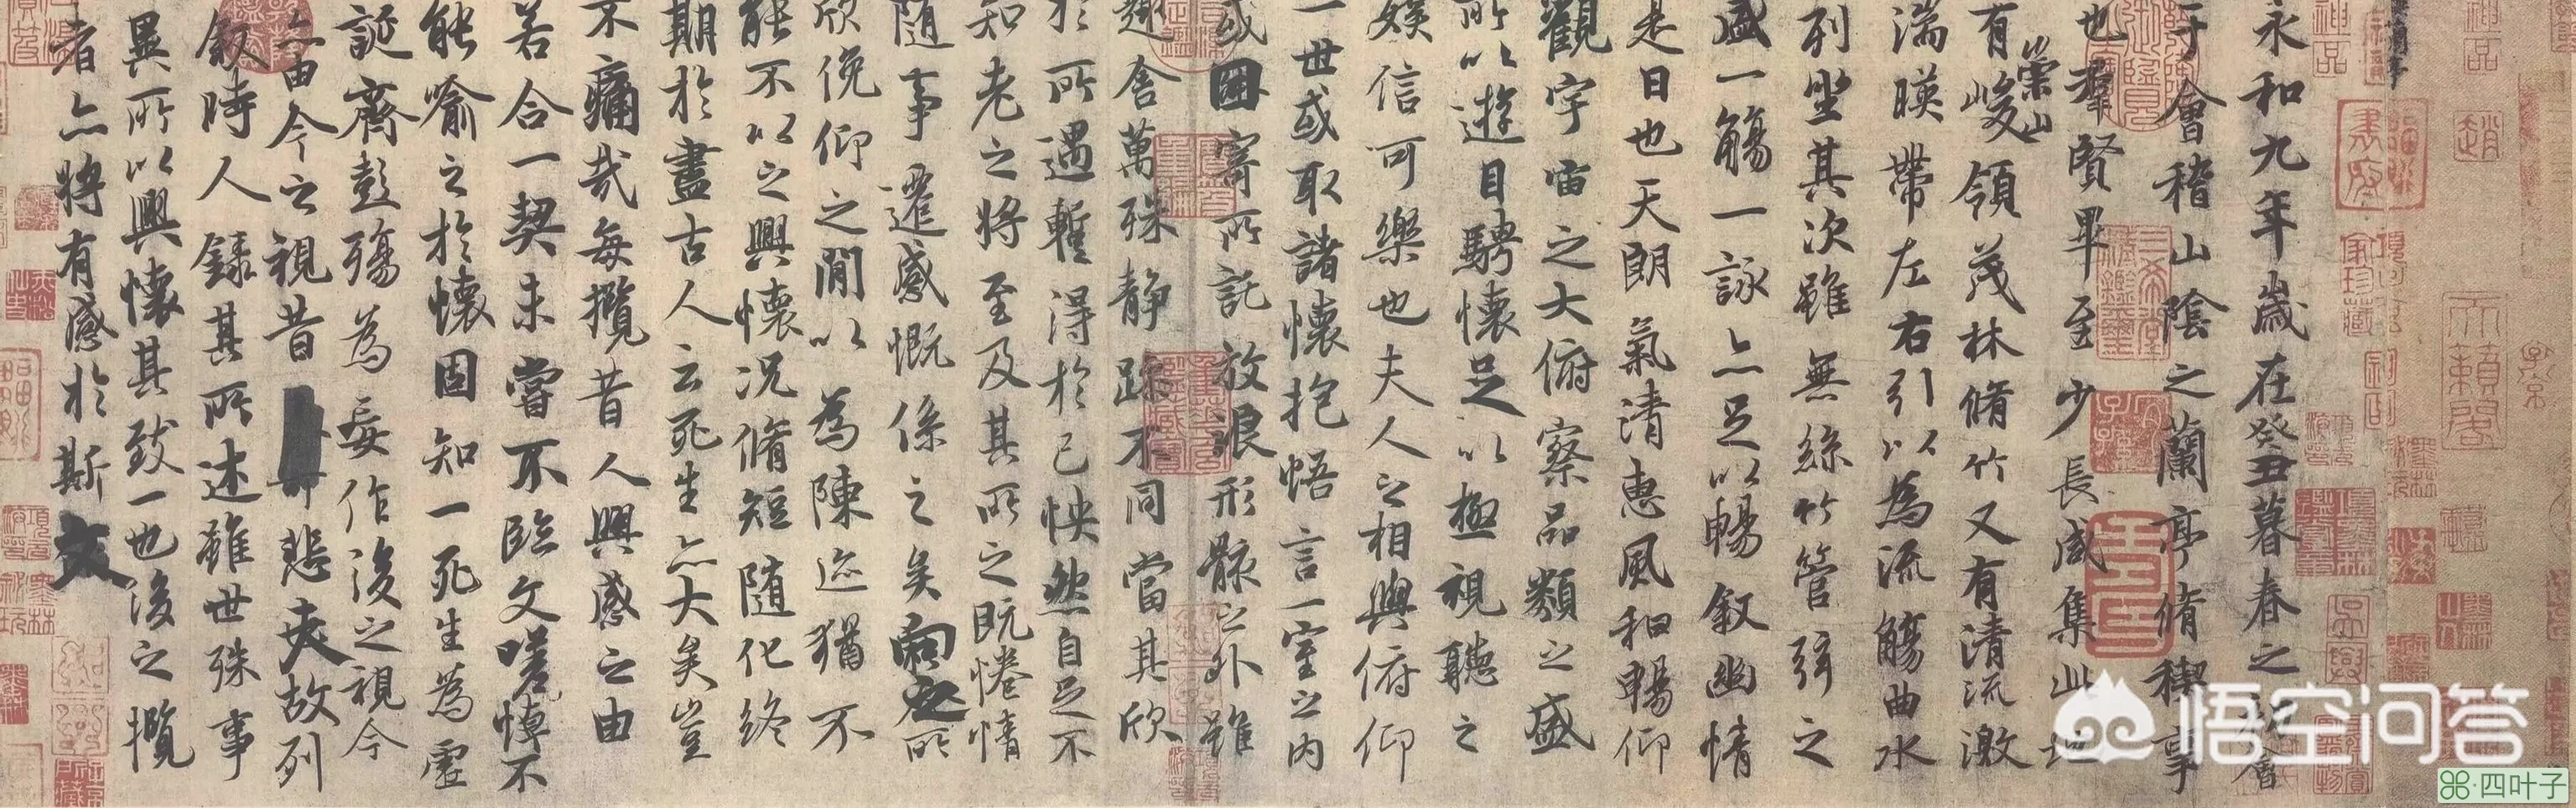 永和九年歲在癸丑暮春之初會
于會稽山陰之蘭亭脩稧事
也羣賢畢至少長咸集此地
有崇山峻領茂林脩竹又有清流激
湍暎帶左右引以為流觴曲水
列坐其次雖無絲竹管弦之
盛一觴一詠亦足以暢叙幽情
是日也天朗氣清惠風和暢仰
觀宇宙之大俯察品類之盛
所以遊目騁懷足以極視聽之
娛信可樂也夫人之相與俯仰
一世或取諸懷抱悟言一室之內
或因寄所託放浪形骸之外雖
趣舍萬殊静躁不同當其欣
於所遇暫得於己怏然自足不
知老之將至及其所之既惓情
隨事遷感慨係之矣向之所
欣俛仰之閒以為陳迹猶不
能不以之興懷況脩短隨化終
期於盡古人云死生亦大矣豈
不痛哉每攬昔人興感之由
若合一契未嘗不臨文嗟悼不
能喻之於懷固知一死生為虛
誕齊彭殤為妄作後之視今
亦由今之視昔悲夫故列
叙時人錄其所述雖世殊事
異所以興懷其致一也後之攬
者亦將有感於斯文
神品
天籟閣
悟空问答
四叶子